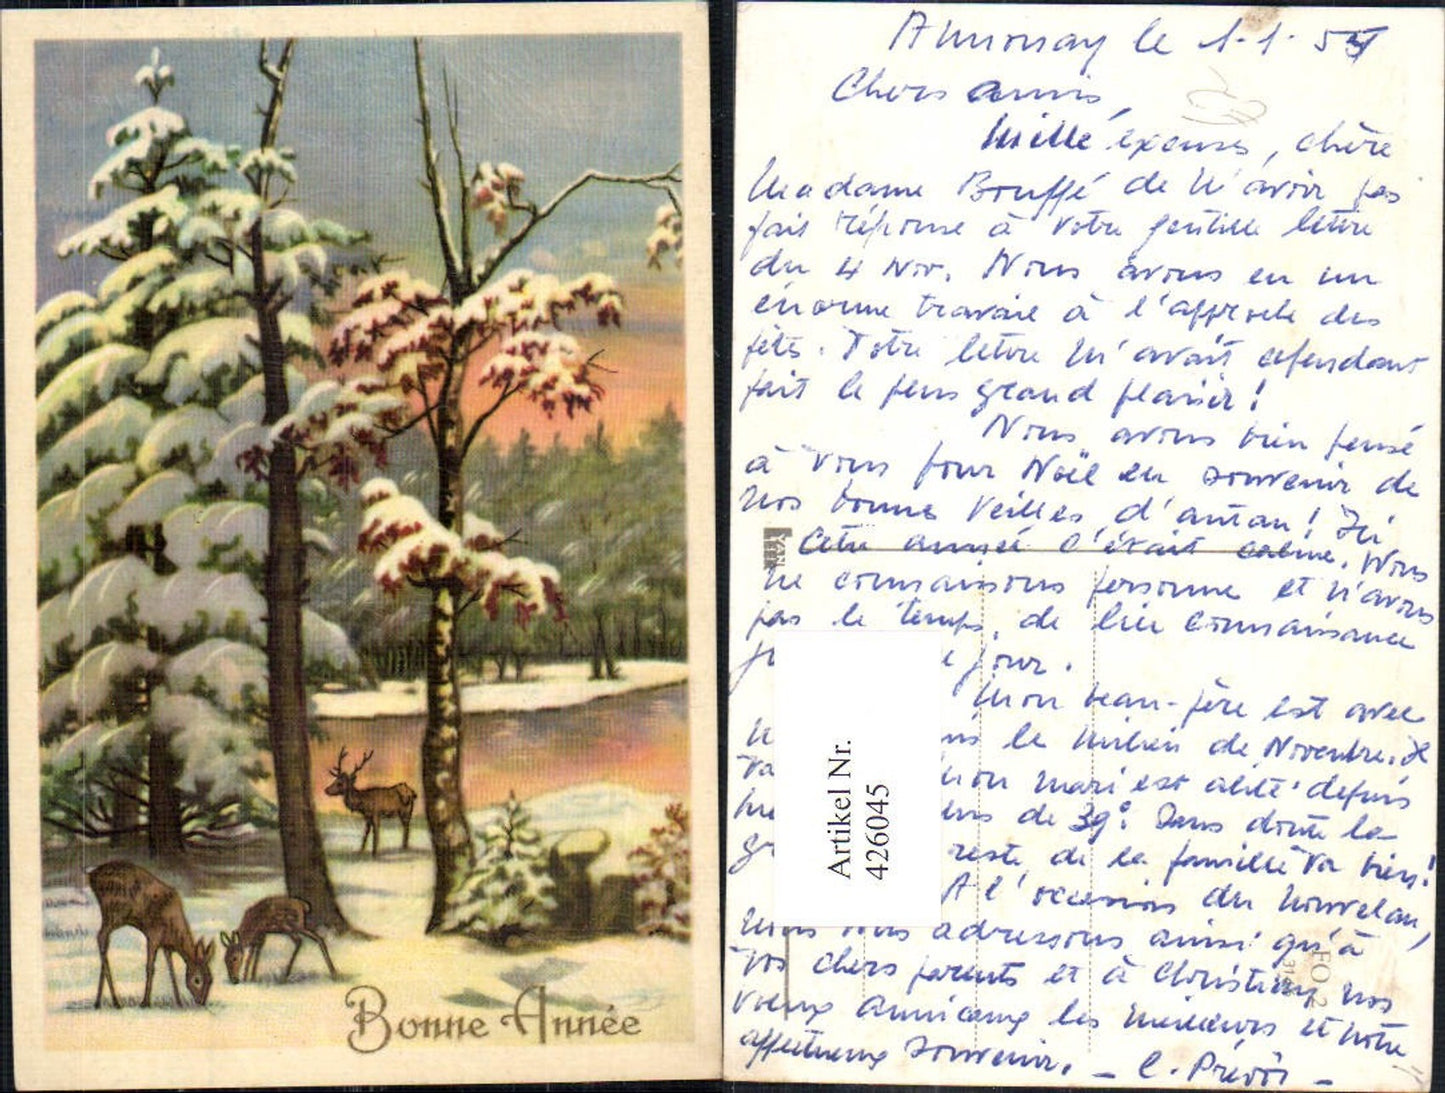 Bonne Année
Annonay le 1-1-55
Chers amis,
Mille excuses, chère
Madame Bouffé de n'avoir pas
fait réponse à votre gentille lettre
du 4 Nov. Nous avons eu un
énorme travail à l'approche des
fêtes. Votre lettre m'avait cependant
fait le plus grand plaisir !
Nous avons bien pensé
à vous pour Noël en souvenir de
nos bonnes veillées d'antan ! Ici
cette année c'était calme. Nous
ne connaissons personne et n'avons
pas le temps de lier connaissance
jour.
Mon beau-père est avec
le milieu de Novembre. Il
va mon mari est alité depuis
de 39°. Sans doute la
reste de la famille va bien !
A l'occasion du nouvel an,
nous vous adressons ainsi qu'à
vos chers parents et à Christian nos
voeux amicaux les meilleurs et notre
affectueux souvenir. - C. Prévôt -
Artikel Nr.
426045